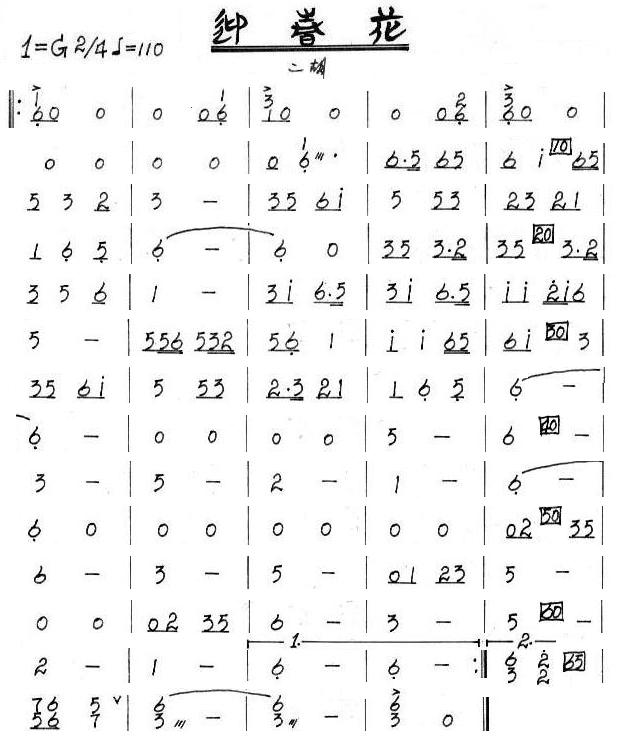 迎春花
1=G 2/4 ♩=110
二胡
‖: 1̇60 0 | 0 0 1 6̣ | 3 1 0 0 | 0 0 2 6̣ | 3 6̣ 0 0 |
0 0 | 0 0 | 0 6̣ 1 /// · | 6·5 65 | 6 i [10] 65 |
5 3 2 | 3 - | 35 6i | 5 53 | 23 21 |
1 6̣ 5̣ | 6̣ - | 6̣ 0 | 35 3·2 | 35 [20] 3·2 |
3 5 6 | 1 - | 3i 6·5 | 3i 6·5 | ii 2̇i6 |
5 - | 556 532 | 56̣ 1 | i i 65 | 6i [30] 3 |
35 6i | 5 53 | 2·3 21 | 1 6̣ 5̣ | 6̣ - |
6̣ - | 0 0 | 0 0 | 5 - | 6 [40] - |
3 - | 5 - | 2 - | 1 - | 6̣ - |
6̣ 0 | 0 0 | 0 0 | 0 0 | 02 [50] 35 |
6 - | 3 - | 5 - | 01 23 | 5 - |
0 0 | 02 35 | 6 - | 3 - | 5 [60] - |
1. 2.
2 - | 1 - | 6̣ - | 6̣ - :‖ 6 3 2̇ 2 [65] |
76 5 ∨ | 6 /// - | 6 /// - | 6 0 ‖
56 7 3 3 3